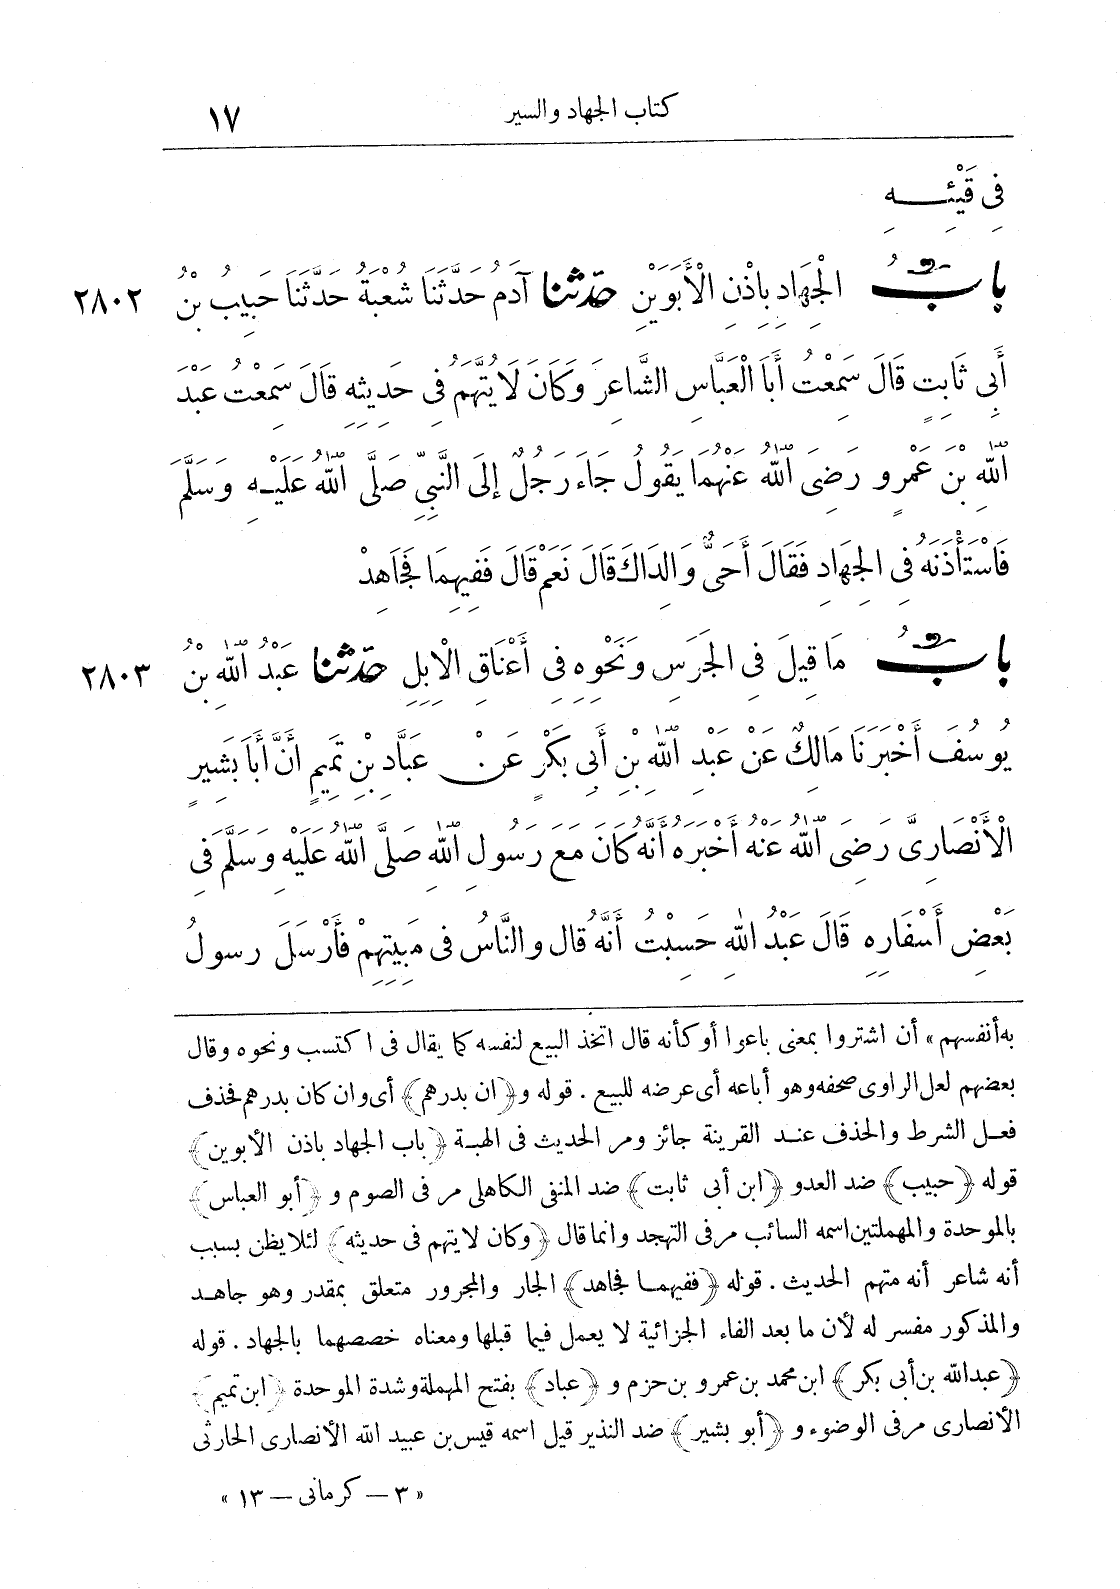 ١٧ كتاب الجهاد والسير
فِى قَيْئِـــهِ
بابُ الْجِهَادِ بِاذْنِ الْأَبَوَيْنِ حدّثنا آدَمُ حَدَّثَنَا شُعْبَةُ حَدَّثَنَا حَبِيبُ بْنُ ٢٨٠٢
أَبِى ثَابِتٍ قَالَ سَمِعْتُ أَبَا الْعَبَّاسِ الشَّاعِرَ وَكَانَ لَا يُتَّهَمُ فِى حَدِيثِهِ قَالَ سَمِعْتُ عَبْدَ
اللهِ بْنَ عَمْرٍو رَضِىَ اللهُ عَنْهُمَا يَقُولُ جَاءَ رَجُلٌ إِلَى النَّبِىِّ صَلَّى اللهُ عَلَيْـهِ وَسَلَّمَ
فَاسْتَأْذَنَهُ فِى الجِهَادِ فَقَالَ أَحَىٌّ وَالِدَاكَ قَالَ نَعَمْ قَالَ فَفِيهِمَا فَجَاهِدْ
بابُ مَا قِيلَ فِى الجَرَسِ وَنَحْوِهِ فِى أَعْنَاقِ الْابِلِ حدّثنا عَبْدُ اللهِ بْنُ ٢٨٠٣
يُوسُفَ أَخْبَرَنَا مَالِكٌ عَنْ عَبْدِ اللهِ بْنِ أَبِى بَكْرٍ عَنْ عَبَّادِ بْنِ تَمِيمٍ أَنَّ أَبَا بَشِيرٍ
الْأَنْصَارِىَّ رَضِىَ اللهُ عَنْهُ أَخْبَرَهُ أَنَّهُ كَانَ مَعَ رَسُولِ اللهِ صَلَّى اللهُ عَلَيْهِ وَسَلَّمَ فِى
بَعْضِ أَسْفَارِهِ قَالَ عَبْدُ اللهِ حَسِبْتُ أَنَّهُ قال والنَّاسُ فى مَبِيتِهِمْ فَأَرْسَلَ رسولُ
به أنفسهم» أن اشتروا بمعنى باعوا أو كأنه قال اتخذ البيع لنفسه كما يقال فى اكتسب ونحوه وقال
بعضهم لعل الراوى صحفه وهو أباعه أى عرضه للبيع . قوله و﴿ان بدرهم﴾ أى وان كان بدرهم فحذف
فعـل الشرط والحذف عنـد القرينة جائز ومر الحديث فى الهبـة ﴿باب الجهاد باذن الأبوين﴾
قوله ﴿حبيب﴾ ضد العدو ﴿ابن أبى ثابت﴾ ضد المنفى الكاهلى مر فى الصوم و ﴿أبو العباس﴾
بالموحدة والمهملتين اسمه السائب مر فى التهجد وانما قال ﴿وكان لا يتهم فى حديثه﴾ لئلا يظن بسبب
أنه شاعر أنه متهم الحديث . قوله ﴿ففيهمـا فجاهد﴾ الجار والمجرور متعلق بمقدر وهو جاهـد
والمذكور مفسر له لأن ما بعد الفاء الجزائية لا يعمل فيما قبلها ومعناه خصصهما بالجهاد . قوله
﴿عبدالله بن أبى بكر﴾ ابن محمد بن عمرو بن حزم و ﴿عباد﴾ بفتح المهملة وشدة الموحدة ﴿ابن تميم﴾
الأنصارى مر فى الوضوء و ﴿أبو بشير﴾ ضد النذير قيل اسمه قيس بن عبيد الله الأنصارى الحارثى
« ٣ – كرمانى – ١٣ »